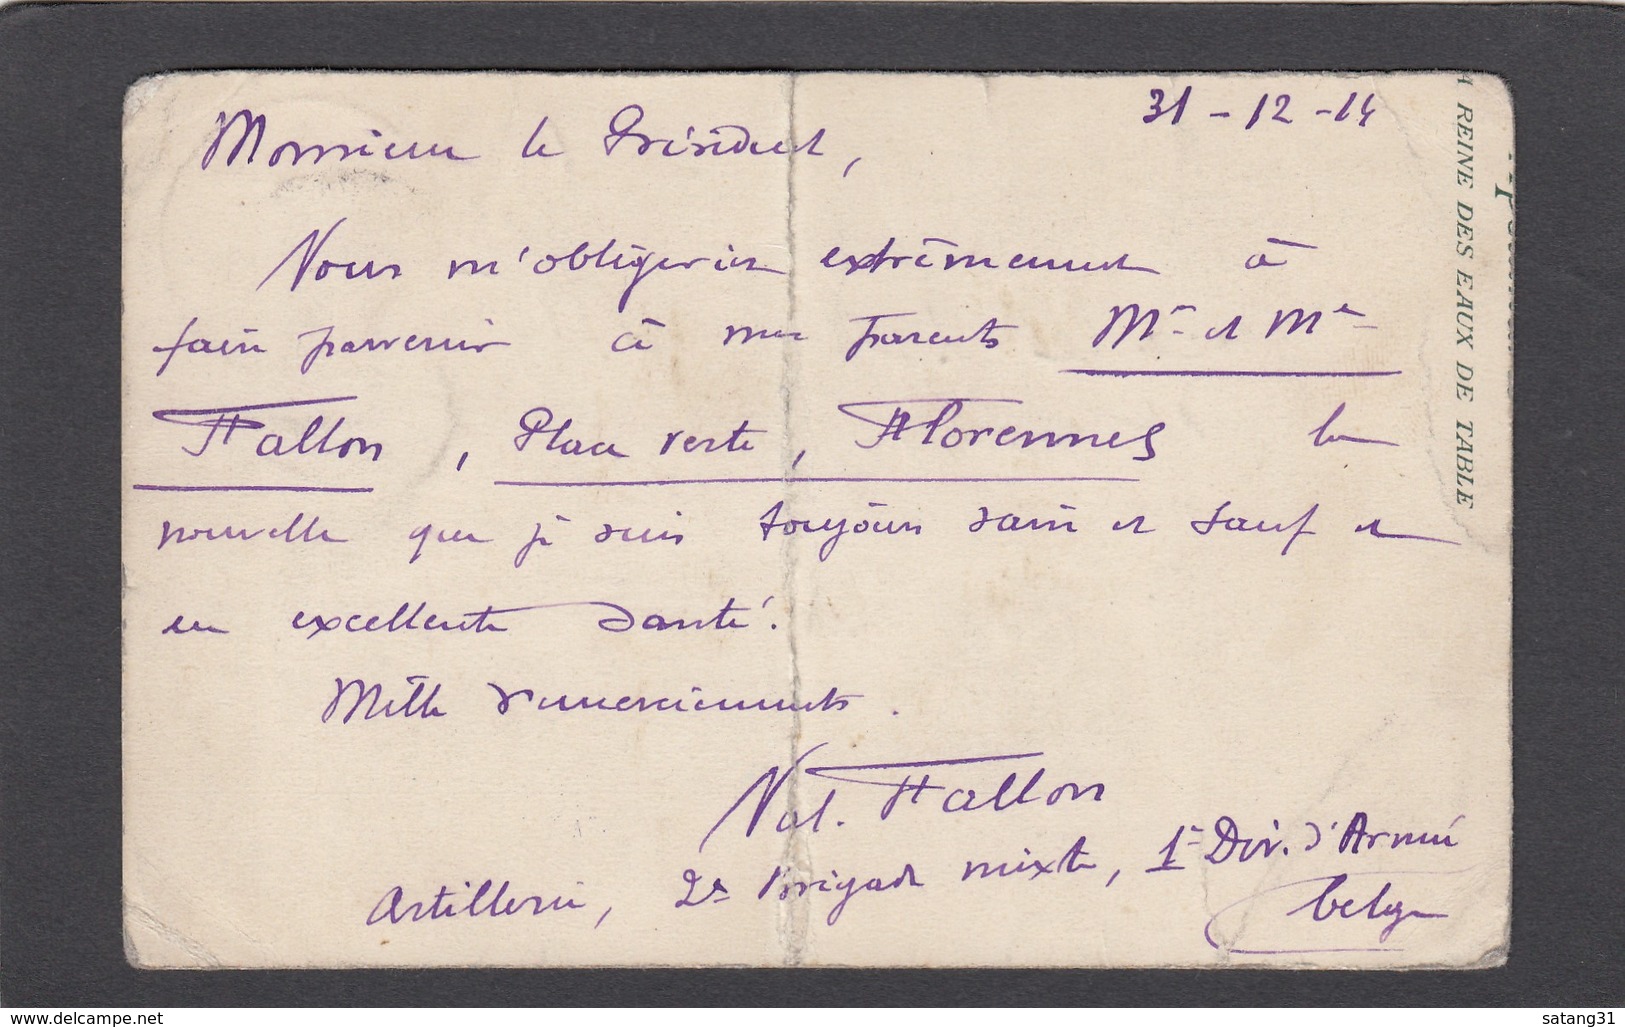 31-12-14
Monsieur le Président,
Vous m'obligeriez extrêmement à
faire parvenir à mes parents Mr et Me
Fallon, Place verte, Florennes la
nouvelle que je suis toujours sain et sauf et
en excellente santé.
Mille remerciements.
Val. Fallon
Artillerie, 2e Brigade mixte, 1e Div. d'Armée
belge
A REINE DES EAUX DE TABLE
www.delcampe.net
satang31